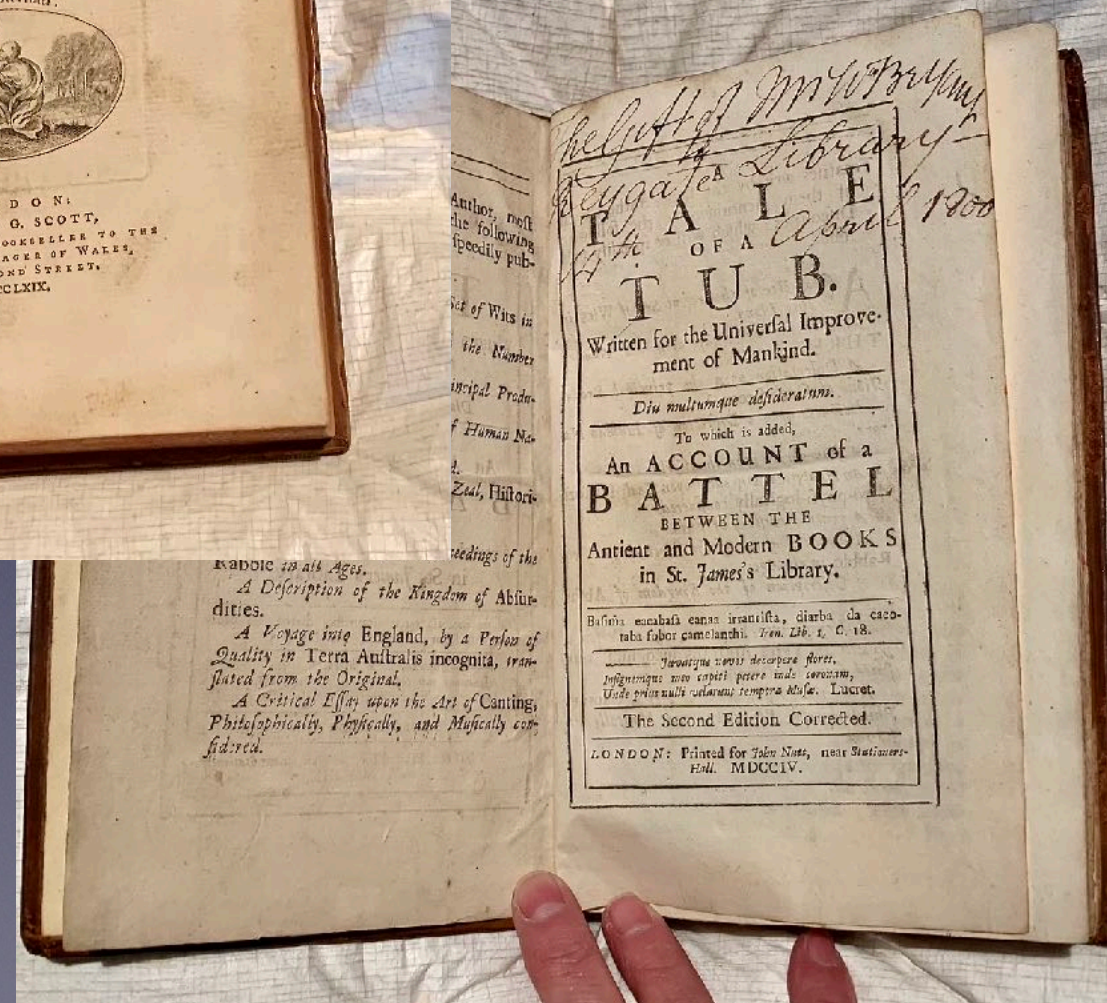 DON:
G. SCOTT,
OOKSELLER TO THE
AGER OF WALES,
OND STREET.
CCLXIX.
Author, moſt
the following
ſpeedily pub-
Set of Wits in
the Number
incipal Produ-
f Human Na-
d.
Zeal, Hiſtori-
eedings of the
Rabble in all Ages.
A Deſcription of the Kingdom of Abſur-
dities.
A Voyage into England, by a Perſon of
Quality in Terra Auſtralis incognita, tran-
ſlated from the Original.
A Critical Eſſay upon the Art of Canting,
Philoſophically, Phyſically, and Muſically con-
ſidered.
he Gift of Mr Wm Bryant
to
Reygate Library
4th April 1800
A
TALE
OF A
TUB.
Written for the Univerſal Improve-
ment of Mankind.
Diu multumque deſideratum.
To which is added,
An ACCOUNT of a
BATTEL
BETWEEN THE
Antient and Modern BOOKS
in St. James's Library.
Baſima eacabaſa eanaa irraurista, diarba da caeo-
taba fobor camelanthi. Iren. Lib. 1. C. 18.
Juvatque novos decerpere flores,
Inſignemque meo capiti petere inde coronam,
Unde prius nulli velarunt tempora Muſæ. Lucret.
The Second Edition Corrected.
LONDON: Printed for John Nutt, near Stationers-
Hall. MDCCIV.